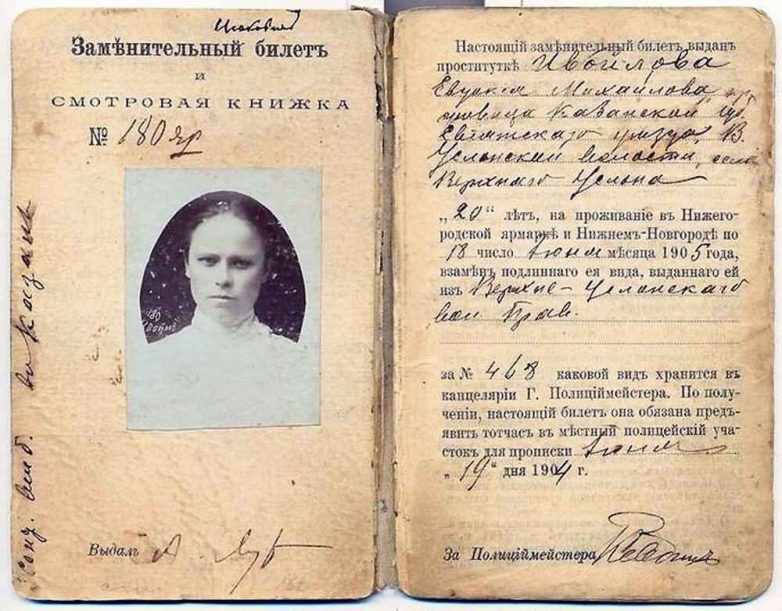 Замѣнительный билетъ
и
СМОТРОВАЯ КНИЖКА
№ 180
въ Казани
Выдалъ
Настоящій замѣнительный билетъ выданъ
проституткѣ Ивойлова
Евдокія Михайлова
Казанской
уѣзда, В.
Услонской волости, села
Верхняго Услона
„20“ лѣтъ, на проживаніе въ Нижего-
родской ярмаркѣ и Нижнемъ-Новгородѣ по
18 число Іюня мѣсяца 1905 года,
взамѣнъ подлиннаго ея вида, выданнаго ей
изъ Верхне-Услонскаго
вол Прав.
за № 468 каковой видъ хранится въ
канцеляріи Г. Полиціймейстера. По полу-
ченіи, настоящій билетъ она обязана предъ-
явить тотчасъ въ мѣстный полицейскій уча-
стокъ для прописки Іюня
„19“ дня 1904 г.
За Полиціймейстера